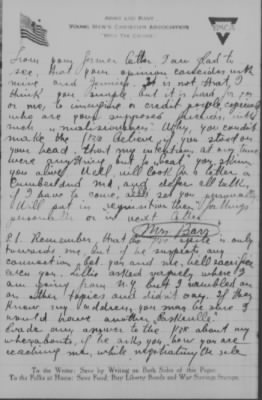 ARMY AND NAVY
YOUNG MEN'S CHRISTIAN ASSOCIATION
"WITH THE COLORS"
YMCA
From your former letter I am glad to
see, that your opinion coincides with
mine and It is not that I
think you simple but it is hard for you
or me, to imagine or credit people, especially
who are your supposed friends, with
such Why, you couldn't
make the believe if you stood on
your head, that my intentions at any time
were anything but to beat you, skin
you alive. Well, will look for a letter in
Cumberland Md, and defer all talk,
if I have to come, and see you personally
Will put in requisition then for things
personal in or next letter
Mrs. Barr
P.S. Remember, that the spite is only
towards me, but if he suspects any
connection, bet. you and me, he'll sacrifice
even you. asked vaguely where I
am going from N.Y. but I rambled on
on other topics and didn't say. If they
knew my address, you may be sure I
would have another
Evade any answer to the as about my
whereabouts, if he asks you, how you are
reaching me, while negotiating the sale
TO THE WRITER: SAVE BY WRITING ON BOTH SIDES OF THIS PAPER.
TO THE FOLKS AT HOME: SAVE FOOD, BUY LIBERTY BONDS AND WAR SAVINGS STAMPS.